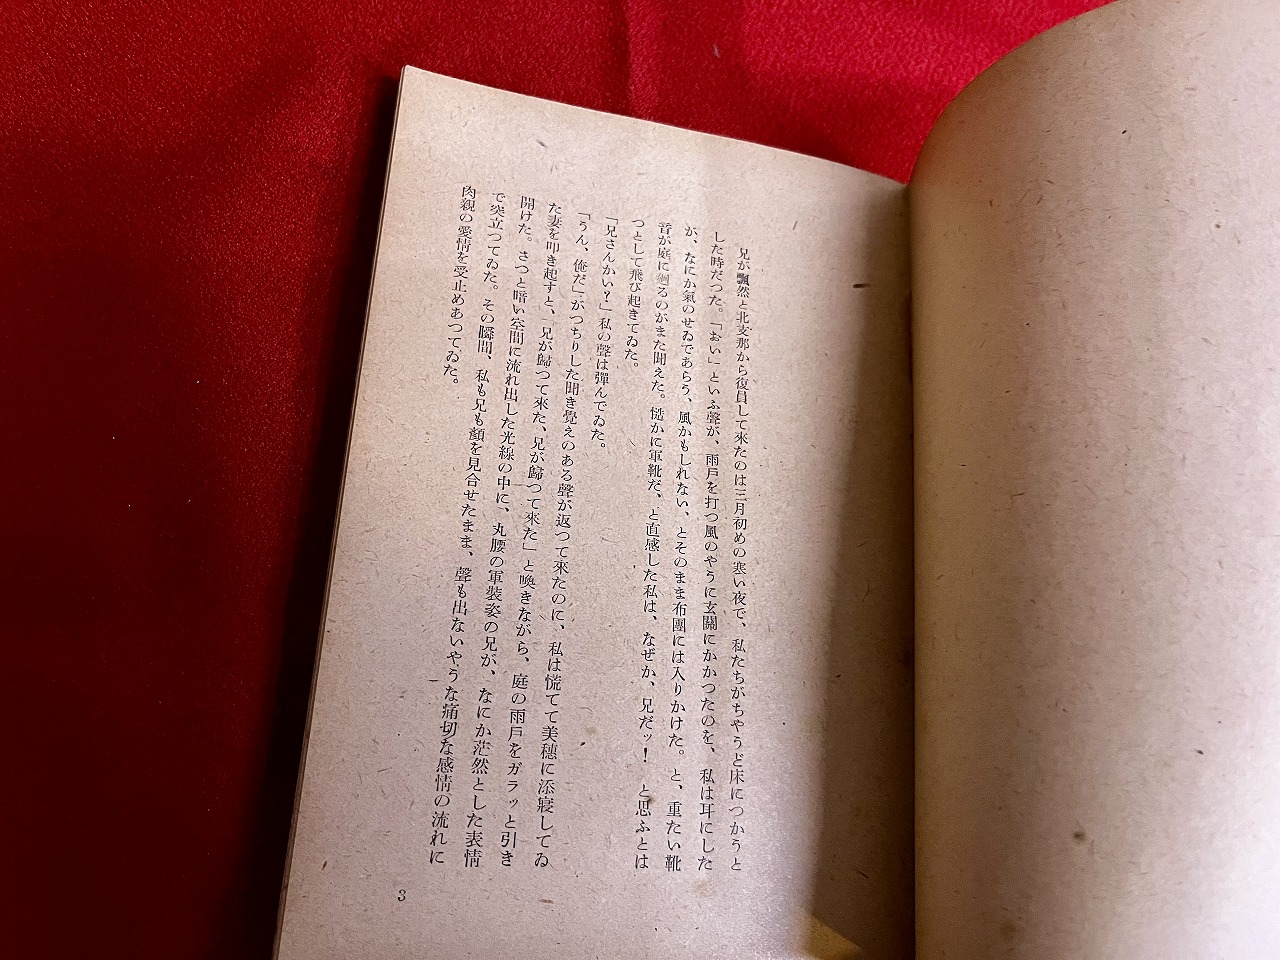 兄が飄然と北支那から復員して來たのは三月初めの寒い夜で、私たちがちやうど床につかうと
した時だつた。「おい」といふ聲が、雨戸を打つ風のやうに玄關にかかつたのを、私は耳にした
が、なにか氣のせゐであらう、風かもしれない、とそのまま布團には入りかけた。と、重たい靴
音が庭に廻るのがまた聞えた。慥かに軍靴だ、と直感した私は、なぜか、兄だッ！　と思ふとは
つとして飛び起きてゐた。
「兄さんかい？」私の聲は彈んでゐた。
「うん、俺だ」がつちりした聞き覺えのある聲が返つて來たのに、私は慌てて美穗に添寢してゐ
た妻を叩き起すと、「兄が歸つて來た、兄が歸つて來た」と喚きながら、庭の雨戸をガラッと引き
開けた。さつと暗い空間に流れ出した光線の中に、丸腰の軍裝姿の兄が、なにか茫然とした表情
で突立つてゐた。その瞬間、私も兄も顏を見合せたまま、聲も出ないやうな痛切な感情の流れに
肉親の愛情を受止めあつてゐた。
3